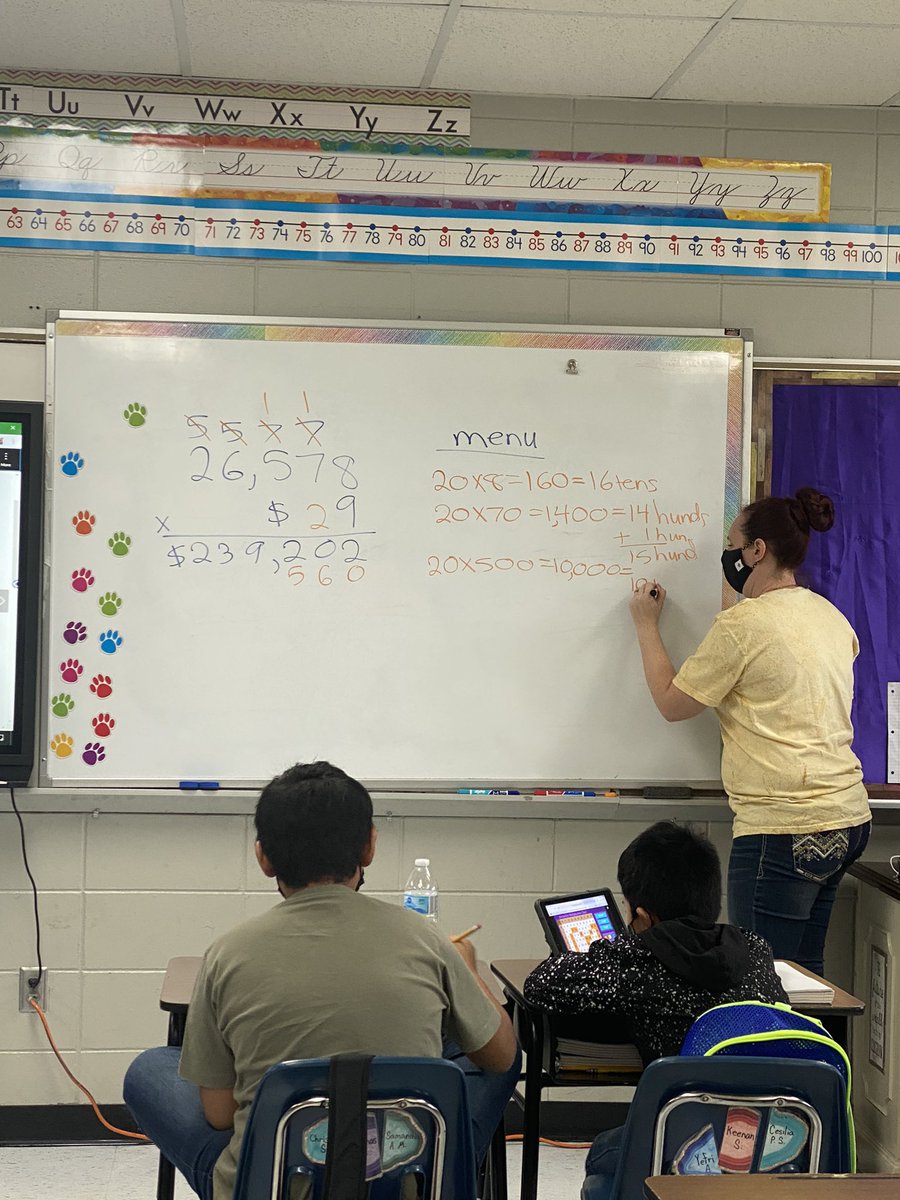 Tt Uu Vv Ww Xx Yy Zz
Qq Rr Ss Tt Uu Vv Ww Xx Yy Zz
63 64 65 66 67 68 69 70 71 72 73 74 75 76 77 78 79 80 81 82 83 84 85 86 87 88 89 90 91 92 93 94 95 96 97 98 99 100
1 1
5 5 7 7
26,578
x $ 29
$239,202
560
menu
20x8=160=16tens
20x70=1,400=14 hunds
+ 1 hun
15 hund
20x500=10,000=
10
Samantha
A. M.
Yefri
A.
Keenan
S.
Cesilia
P.S.